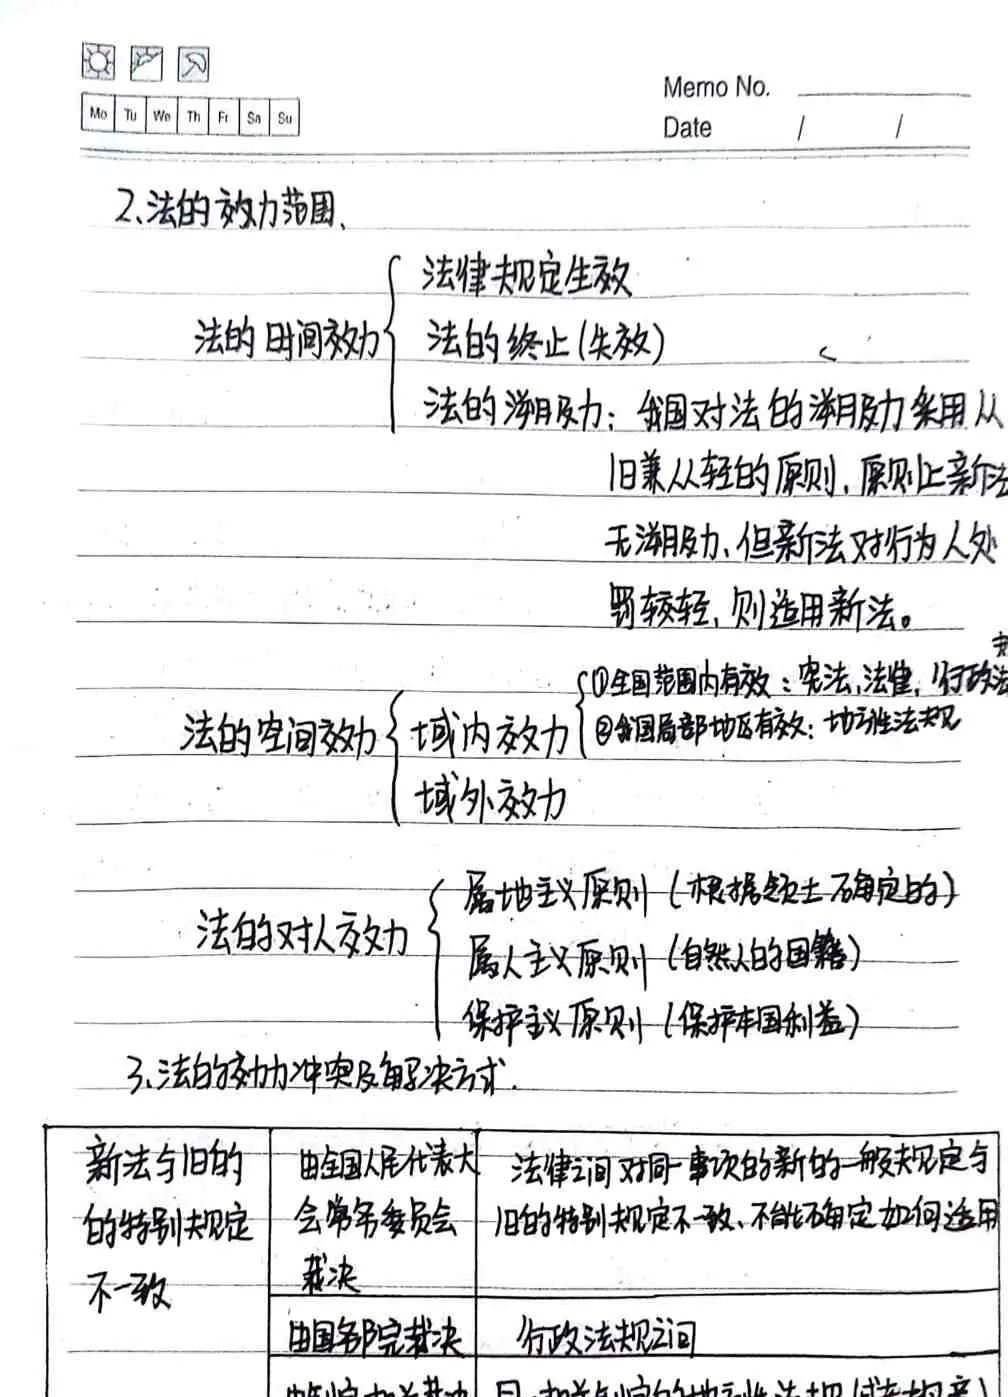 Memo No.
Mo Tu We Th Fr Sa Su
Date / /
2、法的效力范围、
法律规定生效
法的时间效力
法的终止(失效)
法的溯及力：我国对法的溯及力采用从
旧兼从轻的原则、原则上新法
无溯及力、但新法对行为人处
罚较轻，则适用新法。
①全国范围内有效：宪法，法律，行政法
法的空间效力
域内效力
②我国局部地区有效：地方性法规
域外效力
属地主义原则（根据领土确定的）
法的对人效力
属人主义原则（自然人的国籍）
保护主义原则（保护本国利益）
3、法的效力冲突及解决方式.
新法与旧的
的特别规定
不一致
由全国人民代表大
会常务委员会
裁决
法律之间对同一事项的新的一般规定与
旧的特别规定不一致、不能确定如何适用
由国务院裁决
行政法规之间